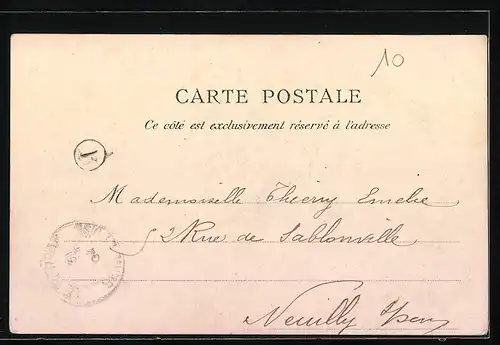 10
CARTE POSTALE
Ce côté est exclusivement réservé à l'adresse
Mademoiselle Thierry Emelie
52 Rue de Sablonville
Neuilly